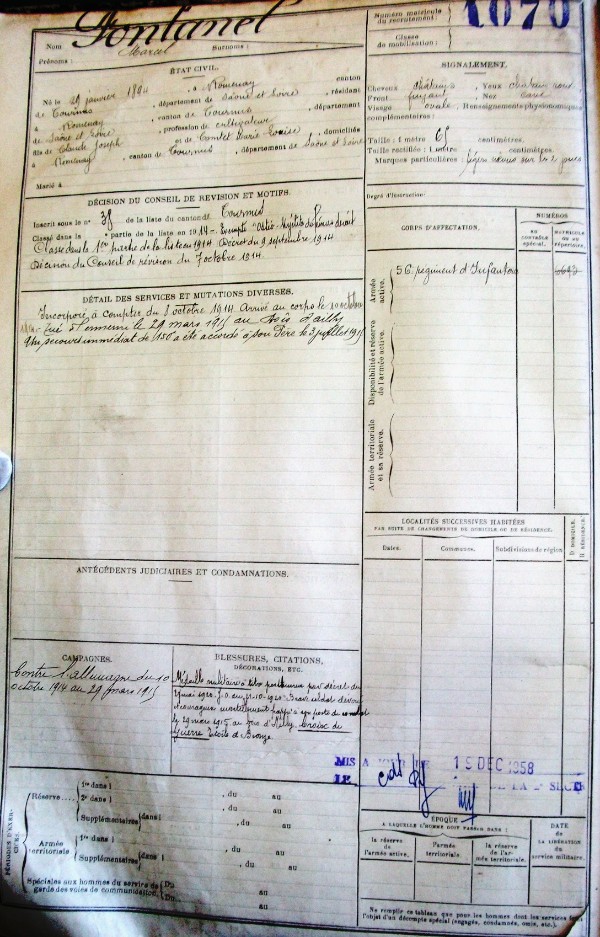 Fontanel
Nom
Marcel
Prénoms :
Surnoms :
ÉTAT CIVIL.
Né le 29 janvier 1894, à Romenay canton
de Tournus, département de Saône et Loire, résidant
à Romenay, canton de Tournus, département
de Saône et Loire, profession de cultivateur
fils de Claude Joseph et de Comtet Marie Louise, domiciliés
à Romenay, canton de Tournus, département de Saône et Loire
Marié à
DÉCISION DU CONSEIL DE REVISION ET MOTIFS.
Inscrit sous le n° 38 de la liste du canton de Tournus
Classé dans la partie de la liste en 1914
Classé dans la 1ère partie de la liste en 1914 Décret du 9 septembre 1914
Décision du Conseil de révision du 7 octobre 1914.
DÉTAIL DES SERVICES ET MUTATIONS DIVERSES.
Incorporé à compter du 8 octobre 1914. Arrivé au corps le 10 octobre
Tué à l'ennemi le 29 mars 1915 au Bois d'ailly
Un secours immédiat de 150 a été accordé à son Père le 3 juillet 1915
ANTÉCÉDENTS JUDICIAIRES ET CONDAMNATIONS.
CAMPAGNES.
Contre l'allemagne du 10
octobre 1914 au 29 mars 1915
BLESSURES, CITATIONS,
DÉCORATIONS, ETC.
Médaille militaire à titre posthume par décret du
mai 1920. J.O. du 10-1920 Brave soldat
courageux mortellement frappé à son poste de combat
le 29 mars 1915 au bois d'Ailly. Croix de
Guerre Etoile de Bronze.
PÉRIODES D'EXERCICES.
Réserve....
1re dans l , du au
2e dans l , du au
Supplémentaires dans l , du au
, du au
Armée
territoriale.
1re dans l , du au
Supplémentaires dans l , du au
, du au
Spéciales aux hommes du service de
garde des voies de communication.
Du au
Du au
Numéro matricule
du recrutement :
1070
Classe
de mobilisation :
SIGNALEMENT.
Cheveux châtains Yeux châtain
Front fuyant Nez cave
Visage ovale. Renseignements physionomiques
complémentaires :
Taille : 1 mètre 65 centimètres.
Taille rectifiée : 1 mètre , centimètres.
Marques particulières :
Degré d'instruction :
CORPS D'AFFECTATION.
NUMÉROS
AU
CONTRÔLE
SPÉCIAL.
MATRICULE
OU AU
RÉPERTOIRE.
Armée
active.
56 régiment d'Infanterie
Disponibilité et réserve
de l'armée active.
Armée territoriale
et sa réserve.
LOCALITÉS SUCCESSIVES HABITÉES
PAR SUITE DE CHANGEMENTS DE DOMICILE OU DE RÉSIDENCE.
Dates.
Commune.
Subdivisions de région
D. DOMICILE.
R. RÉSIDENCE.
MIS A JOUR LE 15 DEC 1958
LE
ÉPOQUE
A LAQUELLE L'HOMME DOIT PASSER DANS :
la réserve
de l'armée active.
l'armée
territoriale.
la réserve
de l'armée territoriale.
DATE
DE LA LIBÉRATION
du
service militaire.
Ne remplir ce tableau que pour les hommes dont les services font
l'objet d'un décompte spécial (engagés, condamnés, omis, etc.).